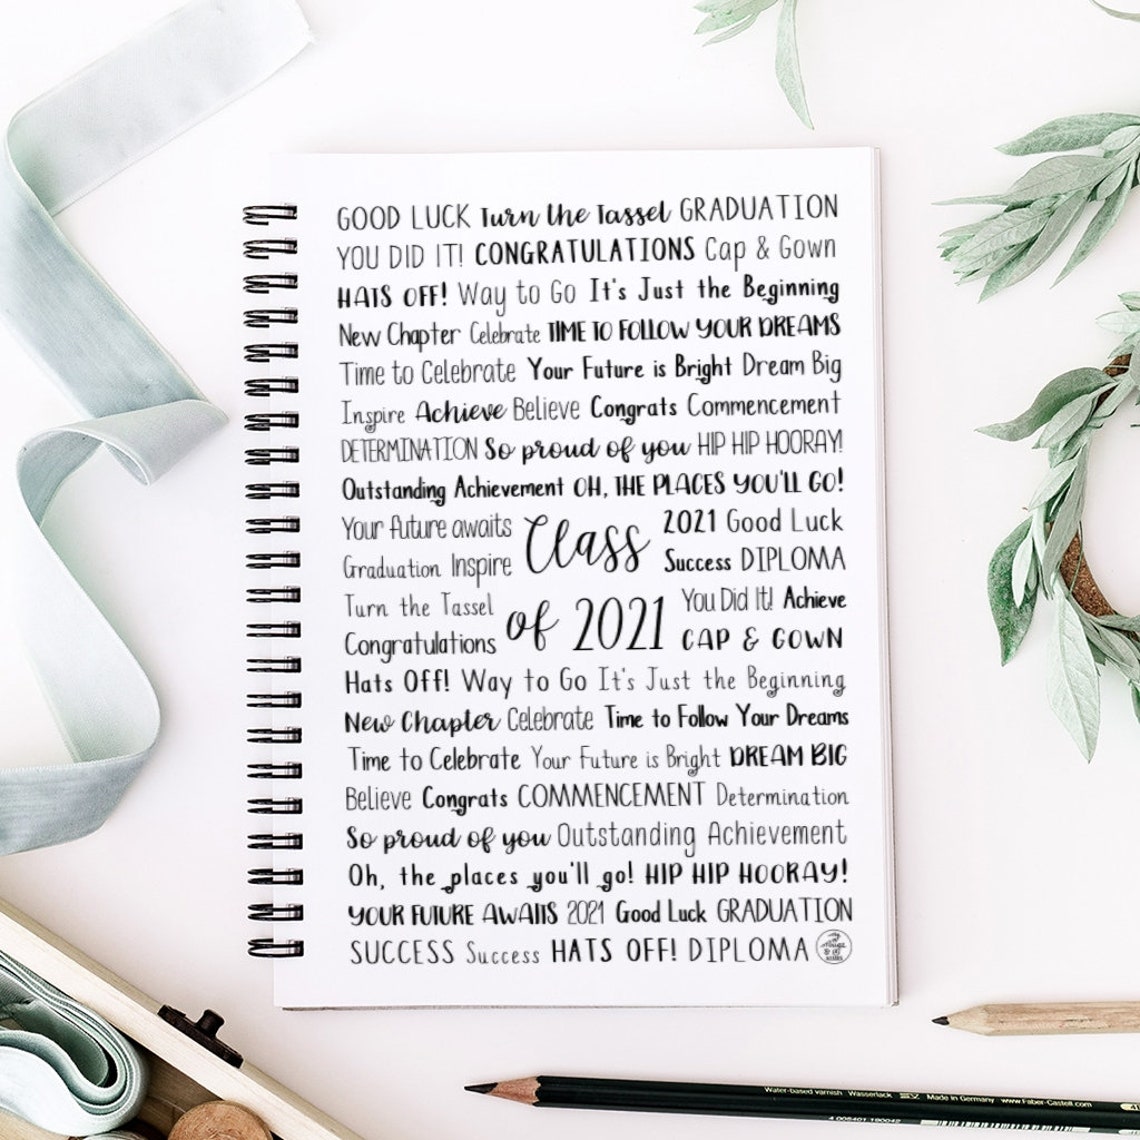 GOOD LUCK Turn the Tassel GRADUATION
YOU DID IT! CONGRATULATIONS Cap & Gown
HATS OFF! Way to Go It's Just the Beginning
New Chapter Celebrate TIME TO FOLLOW YOUR DREAMS
Time to Celebrate Your Future is Bright Dream Big
Inspire Achieve Believe Congrats Commencement
DETERMINATION So proud of you HIP HIP HOORAY!
Outstanding Achievement OH, THE PLACES YOU'LL GO!
Your future awaits Class 2021 Good Luck
Graduation Inspire Success DIPLOMA
Turn the Tassel of 2021 You Did It! Achieve
Congratulations CAP & GOWN
Hats Off! Way to Go It's Just the Beginning
New Chapter Celebrate Time to Follow Your Dreams
Time to Celebrate Your Future is Bright DREAM BIG
Believe Congrats COMMENCEMENT Determination
So proud of you Outstanding Achievement
Oh, the places you'll go! HIP HIP HOORAY!
YOUR FUTURE AWAITS 2021 Good Luck GRADUATION
SUCCESS Success HATS OFF! DIPLOMA
Water-based varnish Wasserlack Made in Germany www.Faber-Castell.com